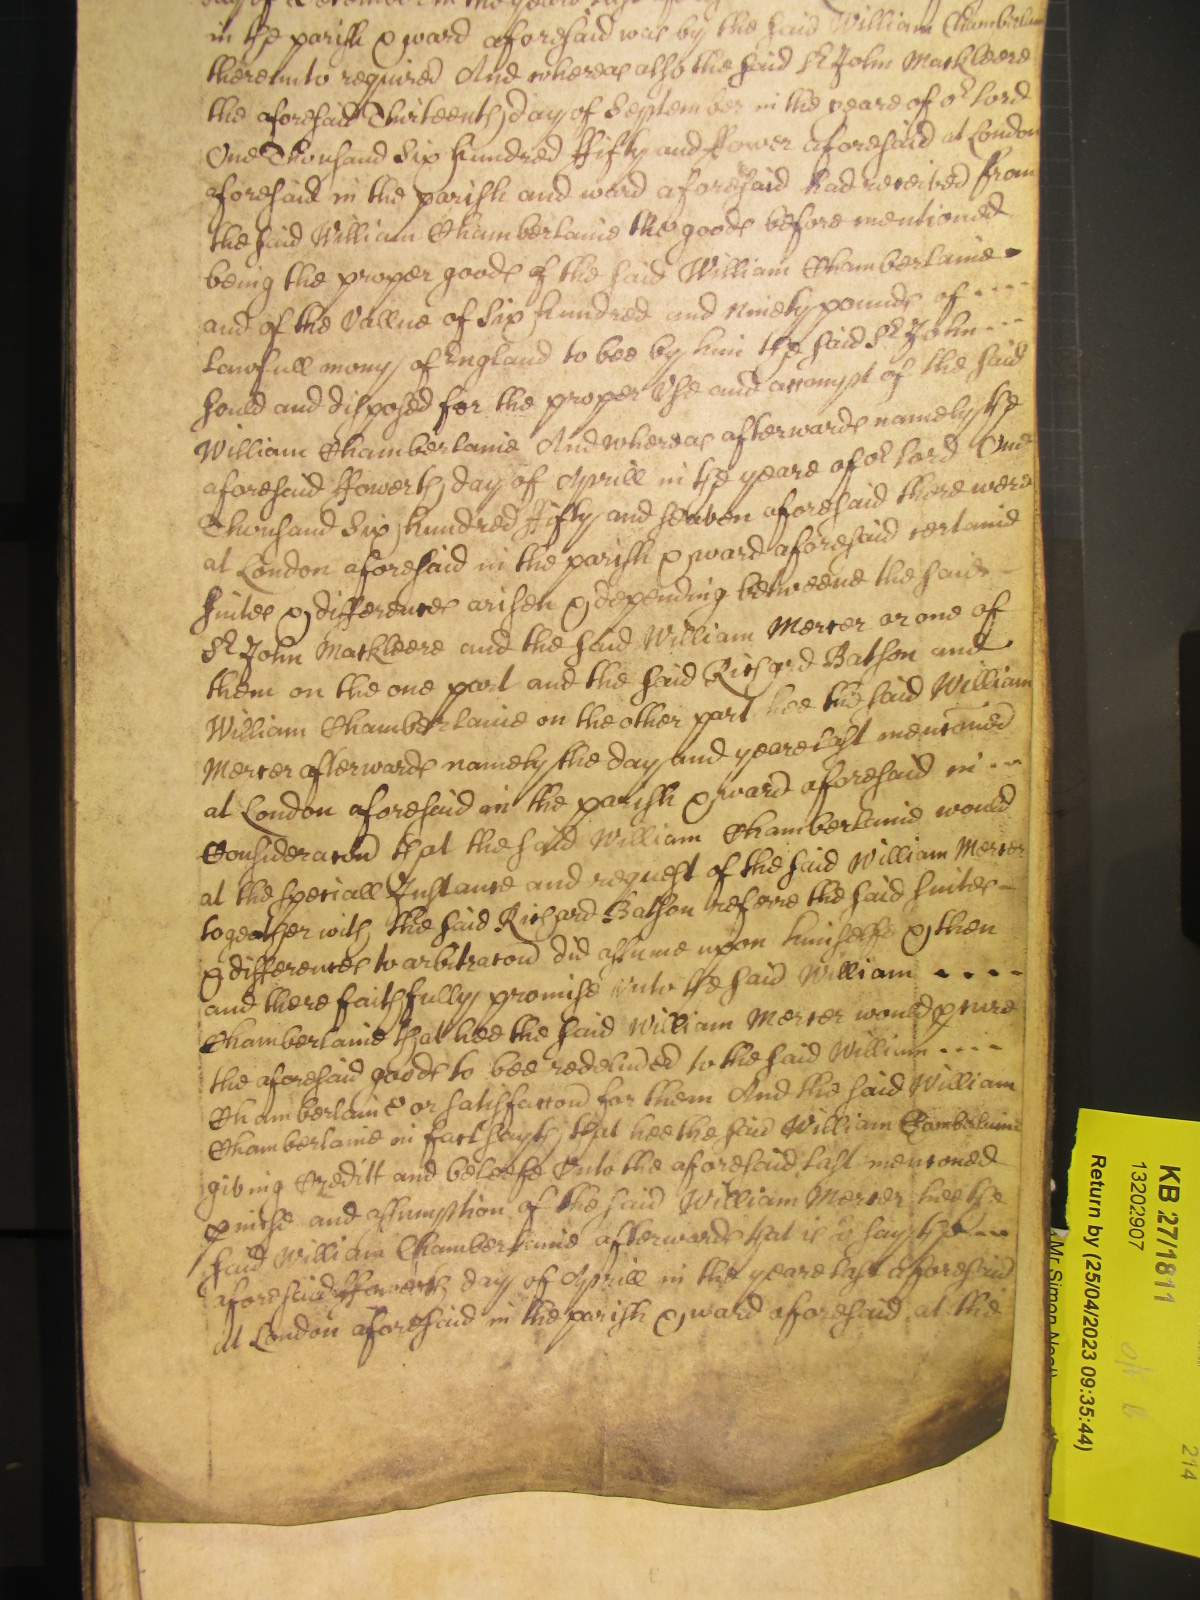 day of December in the yeare last
in the parish & ward aforesaid was by the said William Chamberlaine
thereunto required And whereas alsoe the said St John Mackleere
the aforesaid Thirteenth day of September in the yeare of or Lord
One Thousand Six hundred ffifty and ffower aforesaid at London
aforesaid in the parish and ward aforesaid had received from
the said William Chamberlaine the goods before mentioned
being the proper goods of the said William Chamberlaine
and of the Vallue of Six hundred and ninety pounds of
lawfull mony of England to bee by him the said St John
sould and disposed for the proper Use and accompt of the said
William Chamberlaine And whereas afterwards namely the
aforesaid ffowerth day of Aprill in the yeare of or Lord One
Thousand Six hundred ffifty and seaven aforesaid there were
at London aforesaid in the parish & ward aforesaid certaine
suites & differences arisen & depending betweene the said
St John Mackleere and the said William Mercer or one of
them on the one part and the said Richard Batson and
William Chamberlaine on the other part hee the said William
Mercer afterwards namely the day and yeare last mencioned
at London aforesaid in the parish & ward aforesaid in
Consideracon that the said William Chamberlaine would
at the speciall Instance and request of the said William Mercer
togeather with the said Richard Batson referre the said suites
& differences to arbitracon did assume upon himselfe & then
and there faithfully promise Unto the said William
Chamberlaine that hee the said William Mercer would pcure
the aforesaid goods to bee redelived to the said William
Chamberlaine or satisfaccon for them And the said William
Chamberlaine in fact sayth that hee the said William Chamberlaine
giving Creditt and beleefe Unto the aforesaid last mencioned
pmise and assumption of the said William Mercer hee the
said William Chamberlaine afterwards that is to say the
aforesaid ffowerth day of Aprill in the yeare last aforesaid
at London aforesaid in the parish & ward aforesaid at the
KB 27/1811
13202907
Return by (25/04/2023 09:35:44)
Mr Simon Neal
214